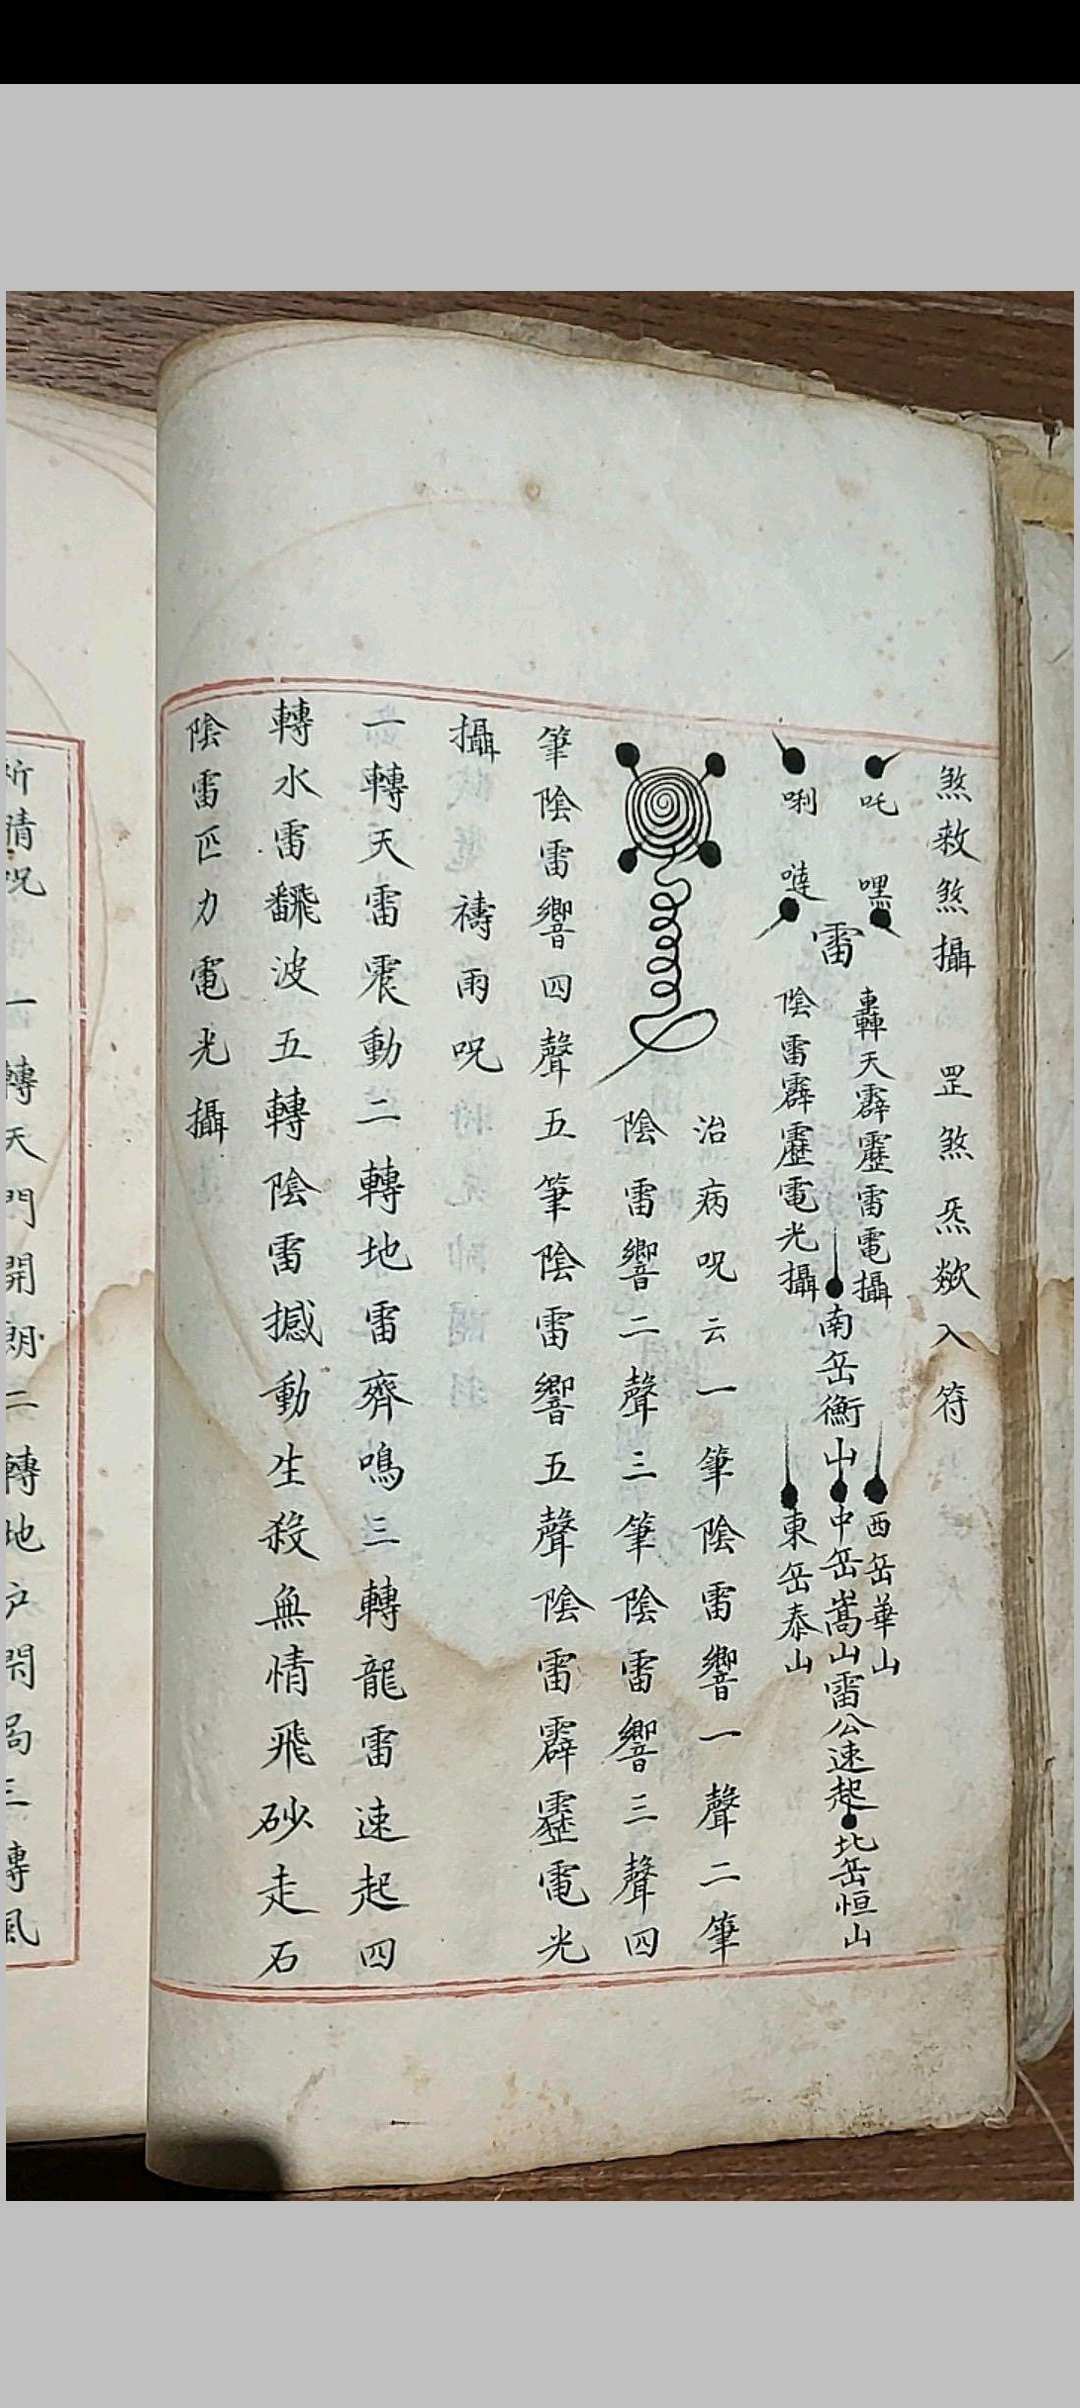 煞敕煞攝　罡煞炁欻入符
吒　嘿
唎　噠
雷
轟天霹靂雷電攝
陰雷霹靂電光攝
南岳衡山
西岳華山
中岳嵩山雷公速起
東岳泰山
北岳恒山
治病呪云一筆陰雷響一聲二筆
陰雷響二聲三筆陰雷響三聲四
筆陰雷響四聲五筆陰雷響五聲陰雷霹靂電光
攝　禱雨呪
一轉天雷震動二轉地雷齊鳴三轉龍雷速起四
轉水雷飜波五轉陰雷撼動生殺無情飛砂走石
陰雷匹力電光攝
祈晴呪　一轉天門開朗二轉地户閉局三轉風